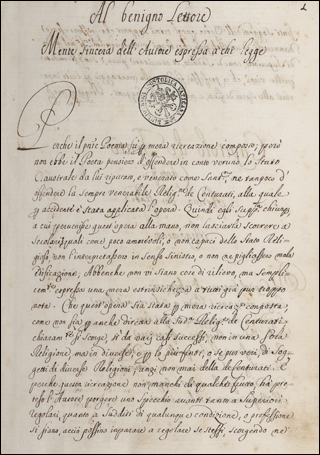 Al benigno Lettore
Mente sincera dell'Autore espressa a chi legge
Perche il pnte Poema fu p mera ricreazione composto, pero
non ebbe il Poeta pensiero d'offendere in conto veruno lo Stato
Claustrale da lui riputato, e venerato come Santo, ne tampoco d'
offendere la sempre venerabile Relig.e de Conturati, alla quale
p accidente è stata applicata l'opera. Quindi egli supp.ca chiunq,
a cui pervenisse quest'opera alla mano, non lasciarla scorrere a
Secolari, quali come poco amorevoli, o non capaci dello Stato Reli-
gioso non l'interpretassero in senso sinistro, o non ne pigliassero mala
edificazione; Abbenche non vi siano cose di rilievo, ma sempli-
cem.te espressa una mera estrinsichezza a tutti già pur troppo
nota. Che quest'opera sia stata p mera ricreaz.e composta,
come non sia p anche diretta alla Sud.a Relig.e de Conturati
chiaram.te si scorge, si da varj casi successi, non in una sola
Religione ma in diverse; e p lo più finti, o se pur veri, di Sog-
getti di diverse Religioni, anzi non mai della de Conturati. E
perche questa ricreazione non manchi di qualche frutto, ha pre-
teso l'Autore porgere uno Specchio avanti tanto a Superiori
regolari, quanto a Sudditi di qualunque condizione, o professione
si siano, acciò possino imparare a regolare se stessi, scorgendo ne